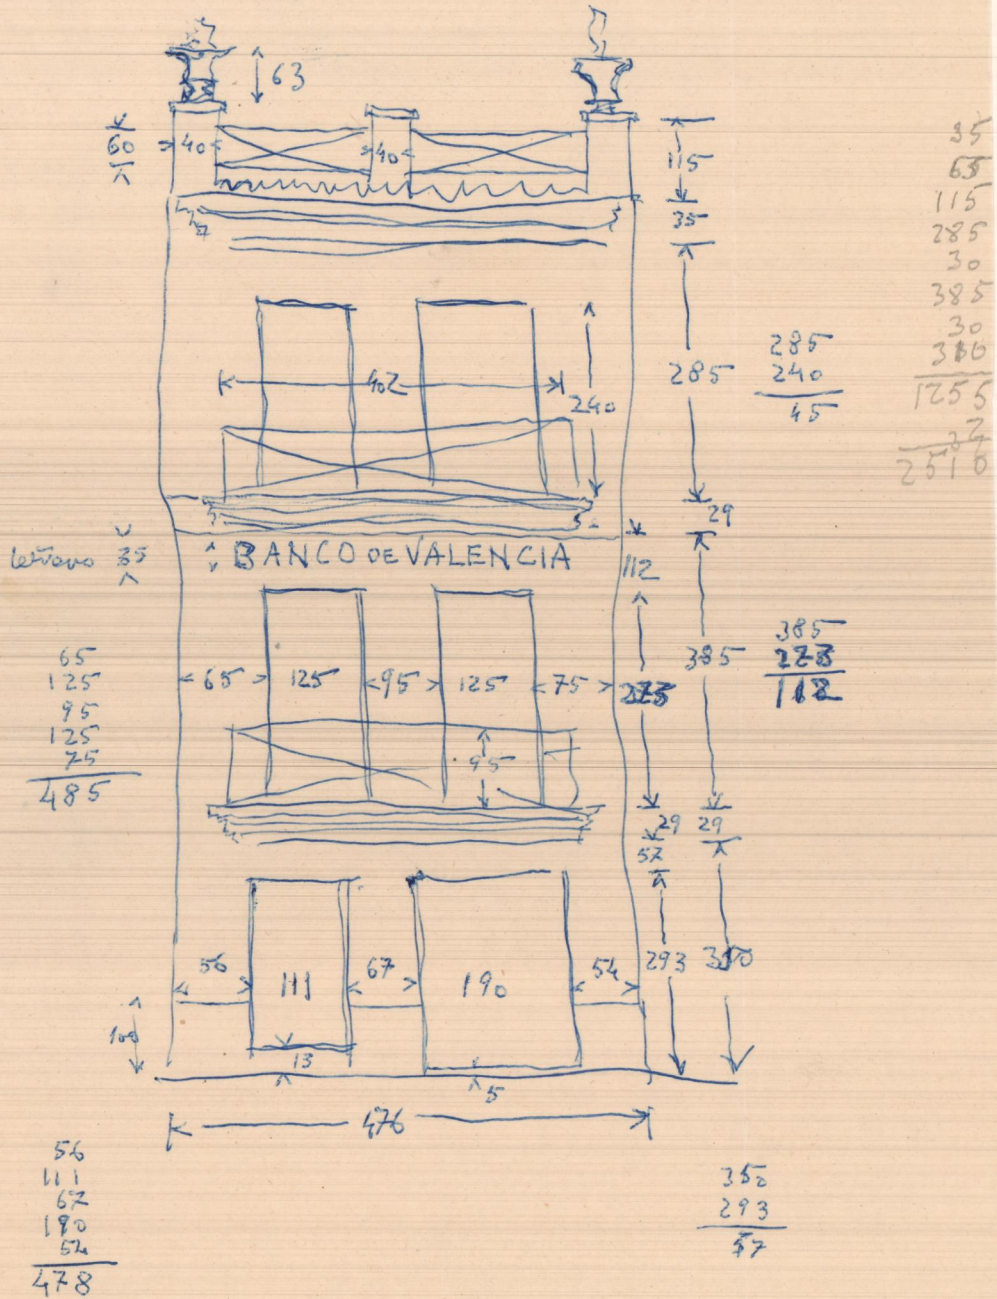 63
60
40
40
115
35
35
65
115
285
30
385
30
1255
2
2510
402
240
285
285
240
45
29
35
BANCO DE VALENCIA
112
65
125
95
125
75
273
385
385
273
112
65
125
95
125
75
485
95
29
29
57
56
111
67
190
54
293
350
100
13
5
476
56
111
67
190
54
478
350
293
57